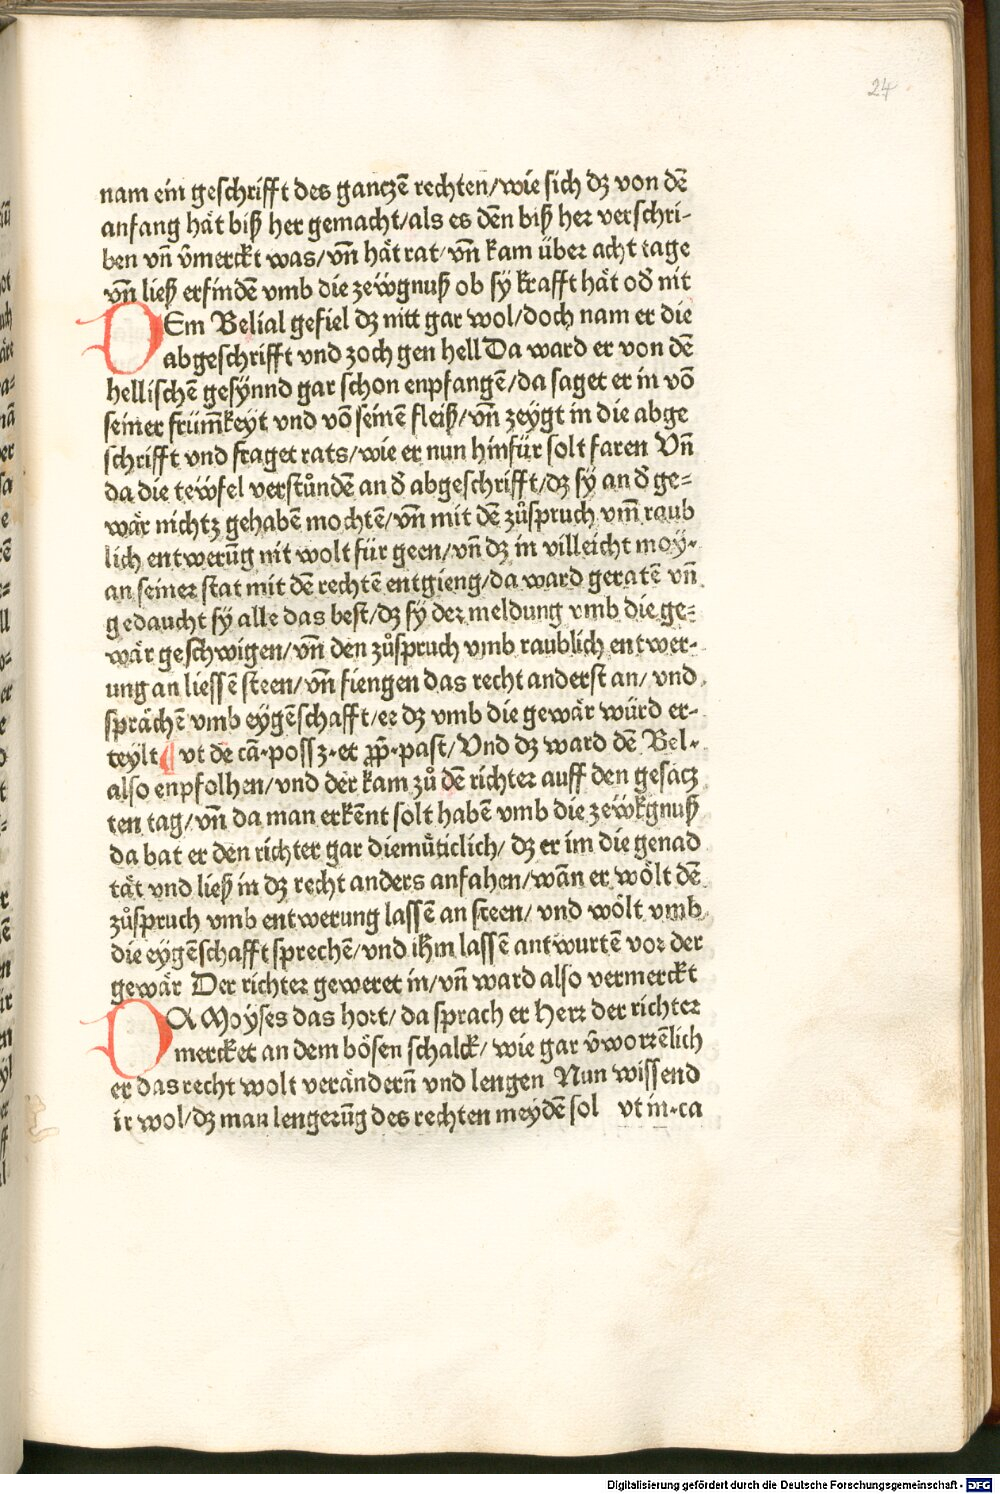 24
nam ein geschrifft des ganczē rechten/wie sich dz von dē
anfang hät biß her gemacht/als es dēn biß her verschri-
ben vn̄ v̄merckt was/vn̄ hät rat/vn̄ kam über acht tage
vn̄ ließ erfindēn vmb die zeẅgnuß ob sy krafft hät od̄ nit
DEm Belial gefiel dz nitt gar wol/doch nam er die
abgeschrifft vnd zoch gen hell Da ward er von dē
hellischē gesÿnnd gar schon enpfangē/da saget er in vō
seiner frūm̄keyt vnd vō seinē fleiß/vn̄ zeÿgt in die abge
schrifft vnd fraget rats/wie er nun hinfür solt faren Vn̄
da die teẅfel verstůndēn an d̄ abgeschrifft/dz sÿ an d̄ ge-
wär nichtz gehabē mochtē/vn̄ mit dē zůspruch vm̄ raub
lich entwerūg nit wolt für geen/vn̄ dz in villeicht moÿ-
an seiner stat mit dē rechtē entgieng/da ward geratē vn̄
gedaucht sÿ alle das best/dz sÿ der meldung vmb die ge-
wär geschwigen/vn̄ den zůspruch vmb raublich entwer-
ung an liessē steen/vn̄ fiengen das recht anderst an/vnd
sprächē vmb eÿgēschafft/er dz vmb die gewär würd er-
teylt ¶ vt de cā·poss z·et p̄p̄·past/Vnd dz ward dē Bel-
also enpfolhen/vnd der kam zů dē richter auff den gesacz
ten tag/vn̄ da man erkēnt solt habē vmb die zeẅkgnuß
da bat er den richter gar diemüticlich/dz er im die genad
tät vnd ließ in dz recht anders anfahen/wān er wölt dē
zůspruch vmb entwerung lassē an steen/vnd wölt vmb
die eÿgēschafft sprechē/vnd ihm lassē antwurtē vor der
gewär Der richter geweret in/vn̄ ward also vermerckt
DA Moyses das hort/da sprach er Herr der richter
mercket an dem bösen schalck/wie gar v̄worrēlich
er das recht wolt verändern̄ vnd lengen Nun wissend
ir wol/dz man lengerūg des rechten meÿdē sol vt in·ca
Digitalisierung gefördert durch die Deutsche Forschungsgemeinschaft - DFG